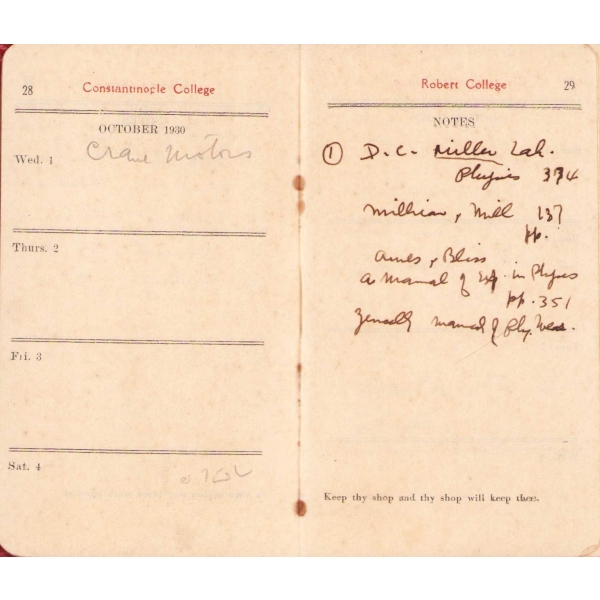 28 Constantinople College
OCTOBER 1930
Wed. 1 Crane Motors
Thurs. 2
Fri. 3
Sat. 4
Robert College 29
NOTES
① D. C. Miller Lab.
Physics 374
Millikan & Mill 137
pp.
Ames & Bliss
A Manual of Exp. in Physics
pp. 351
Manual of Phy. Meas.
Keep thy shop and thy shop will keep thee.